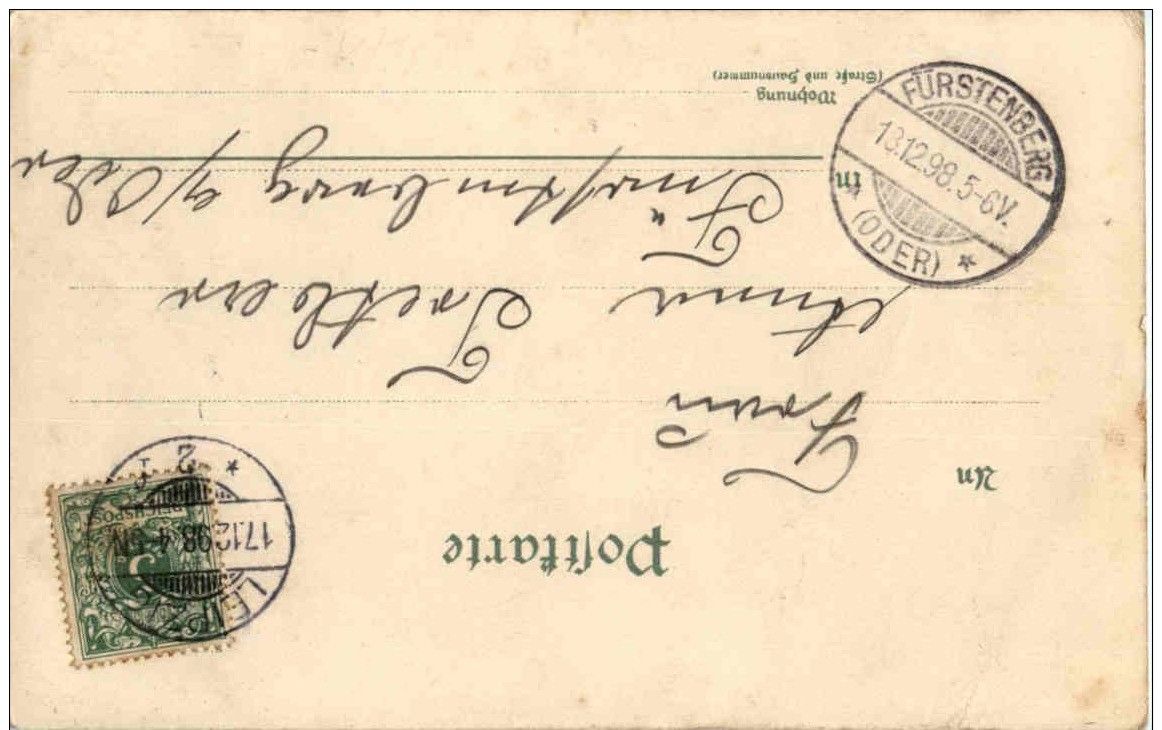 Postkarte
REICHSPO
5
LEIPZIG
17.12.98. 4-5N
* 2 *
An
Frau
Anna
in Fürstenberg a/Oder
Wohnung
(Straße und Hausnummer)
FÜRSTENBERG
18.12.98. 5-6V.
* (ODER) *